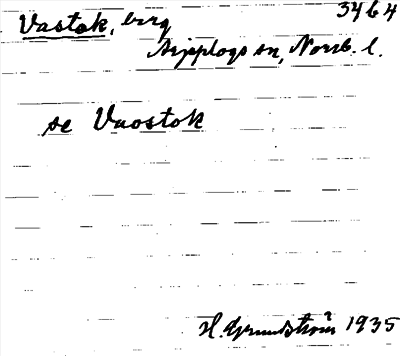 Vastok, berg 3464
Arjeplogs sn, Norrb. l.
se Vuostok
H. Grundström 1935